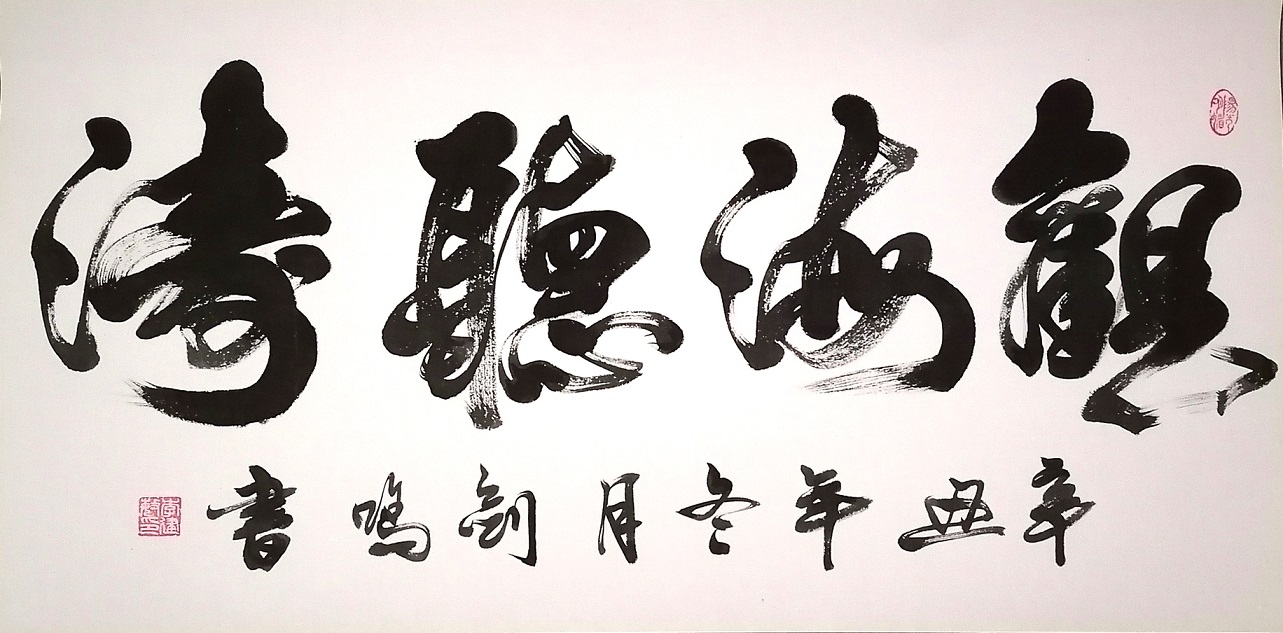 觀海聽濤
辛丑年冬月劍鳴書